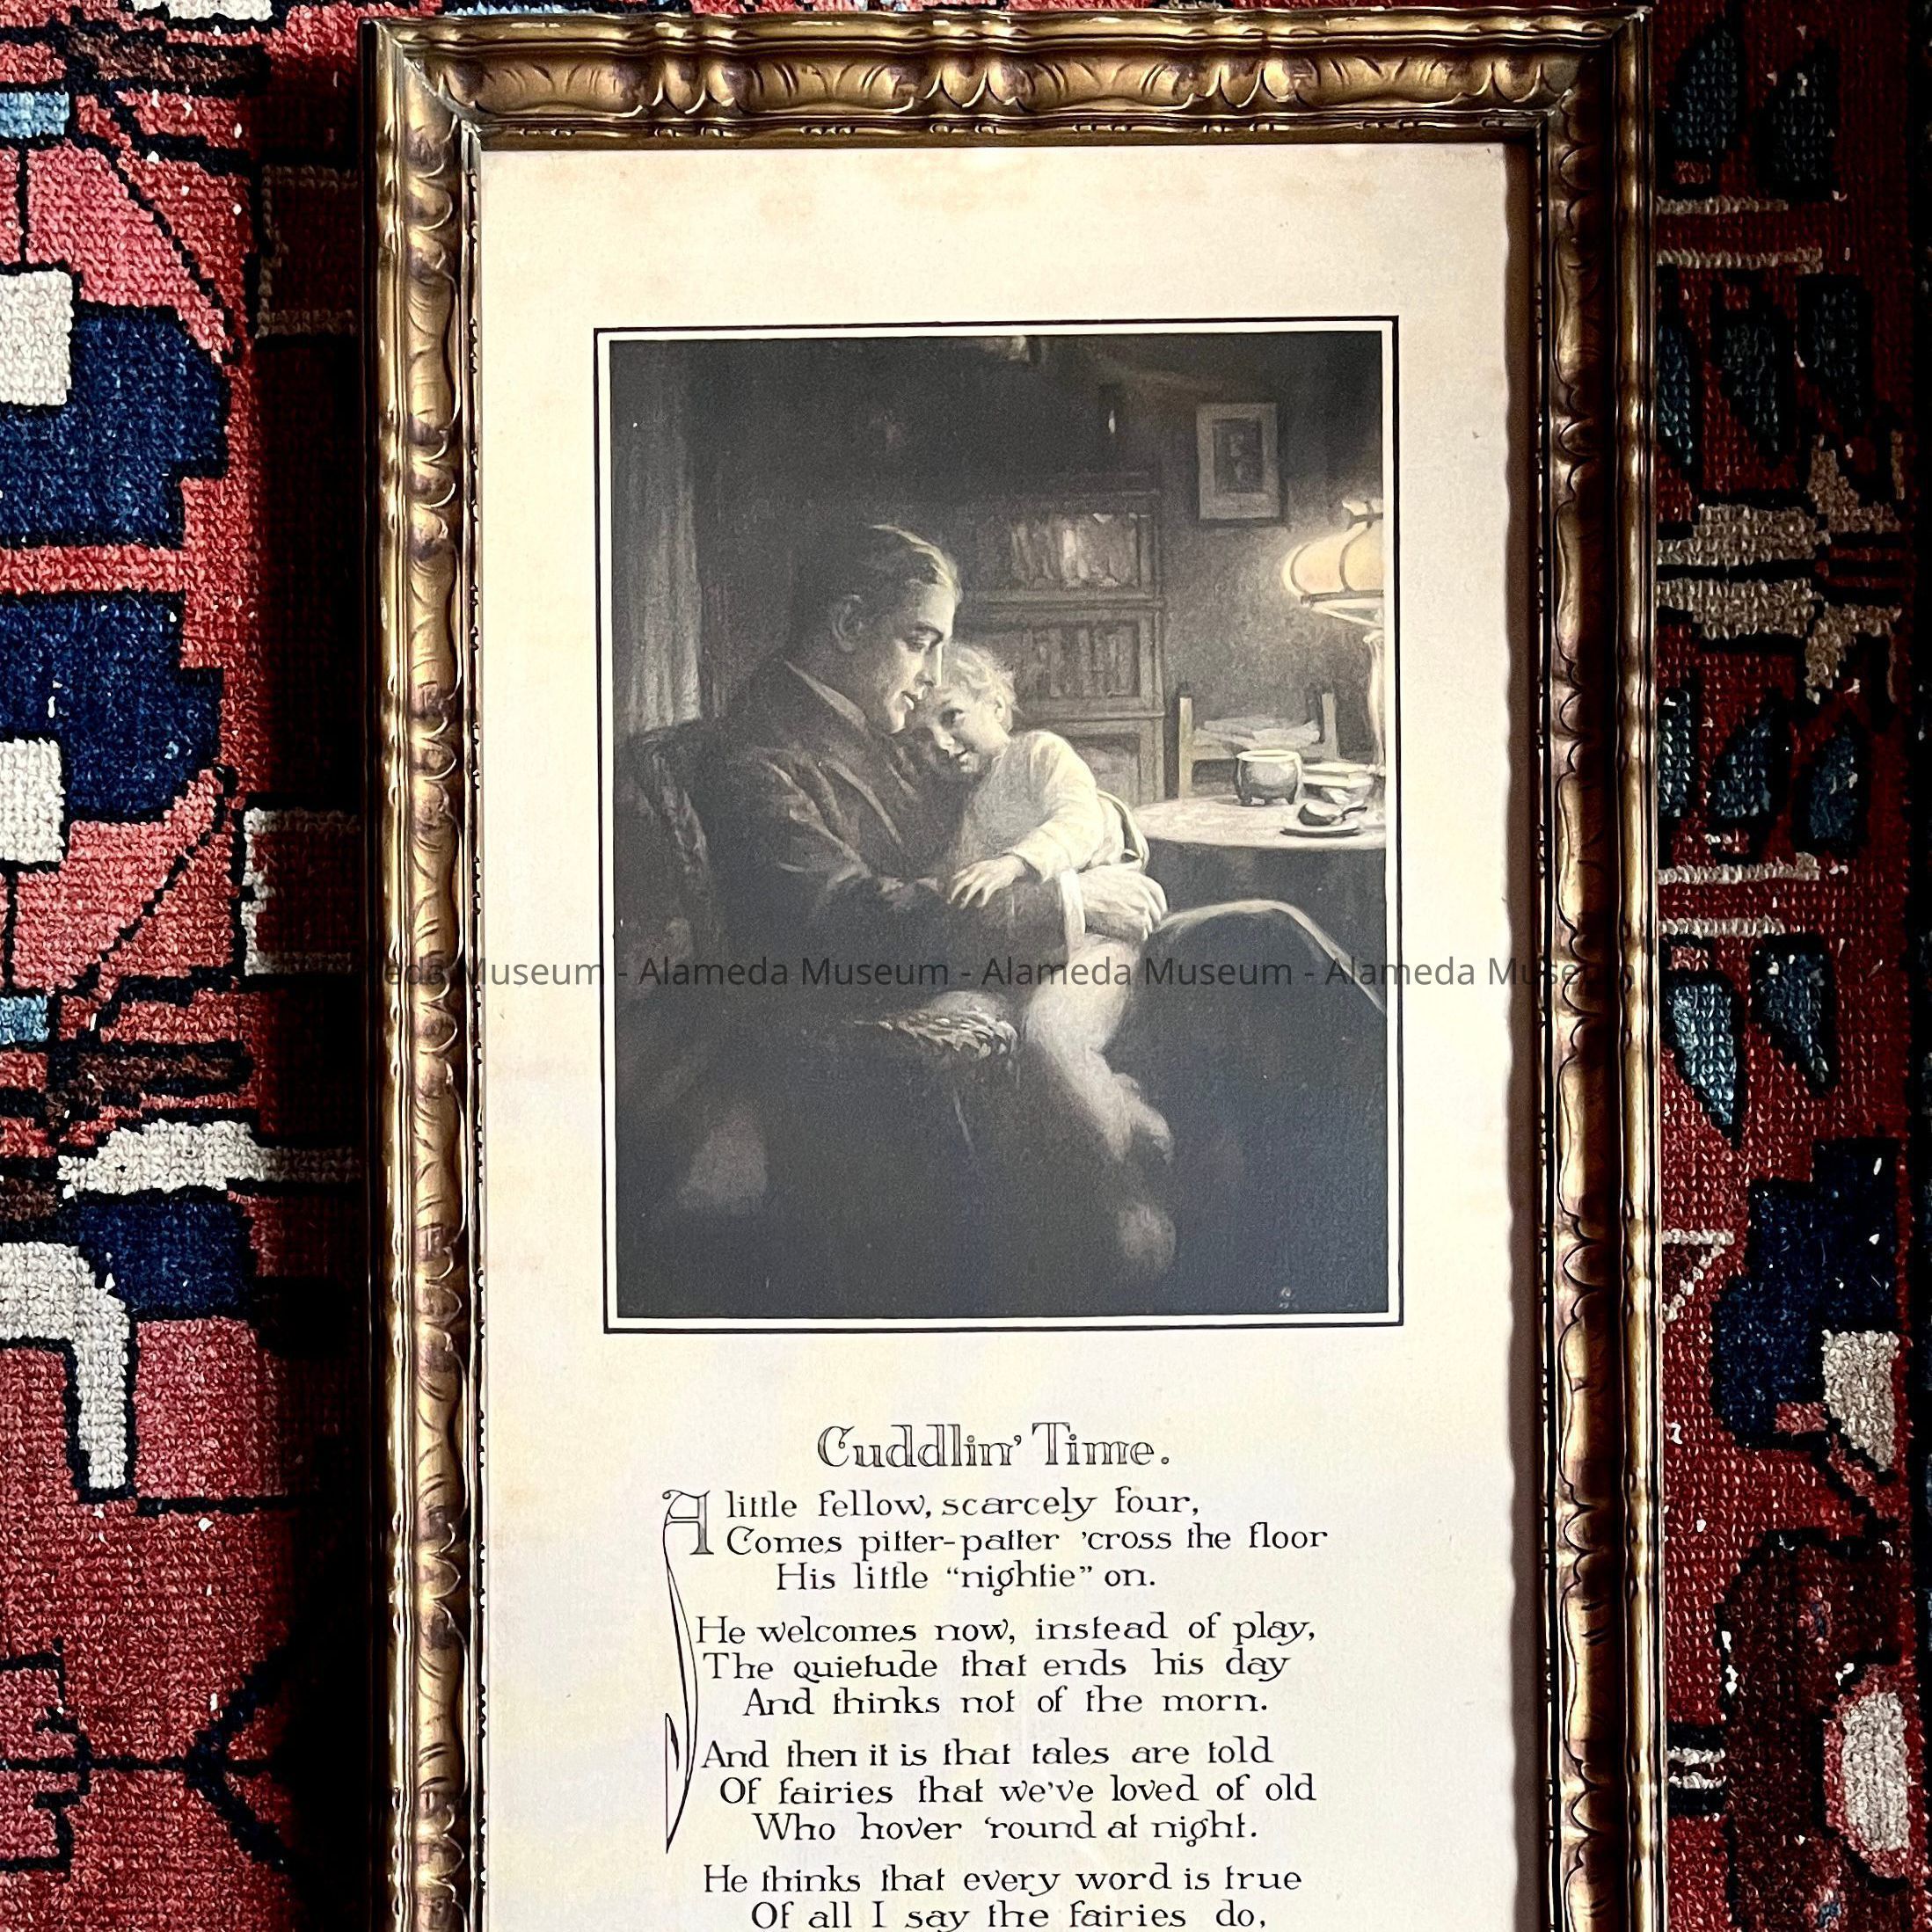 eda Museum - Alameda Museum - Alameda Museum - Alameda Museum
Cuddlin' Time.
A little fellow, scarcely four,
Comes pitter-patter 'cross the floor
His little “nightie” on.
He welcomes now, instead of play,
The quietude that ends his day
And thinks not of the morn.
And then it is that tales are told
Of fairies that we've loved of old
Who hover 'round at night.
He thinks that every word is true
Of all I say the fairies do,